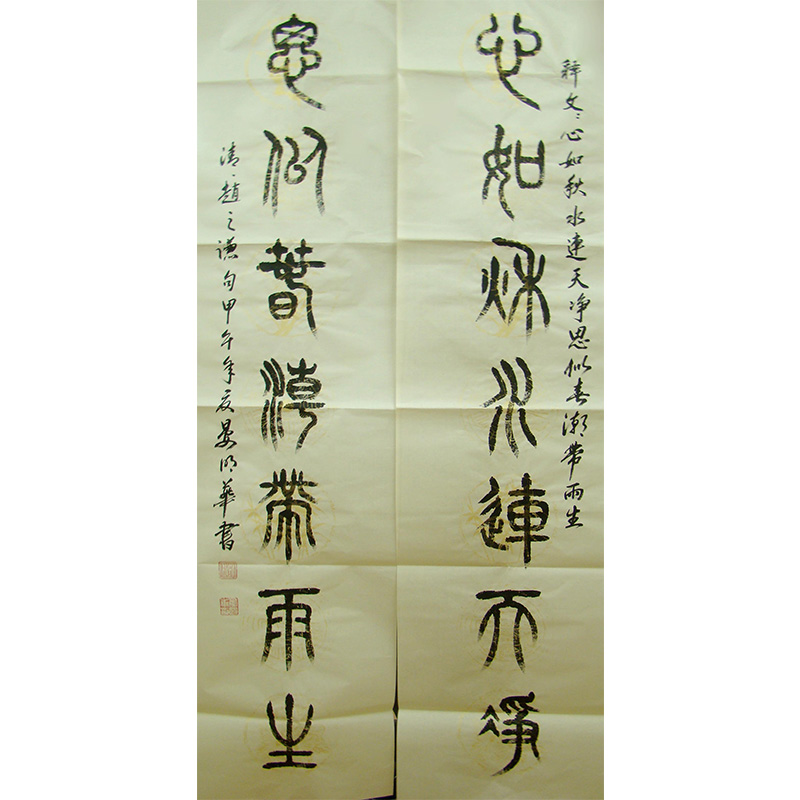 释文：心如秋水连天净思似春潮带雨生
心如秋水連天净
思似春潮帶雨生
清·趙之谦句甲午年夏晏明華書